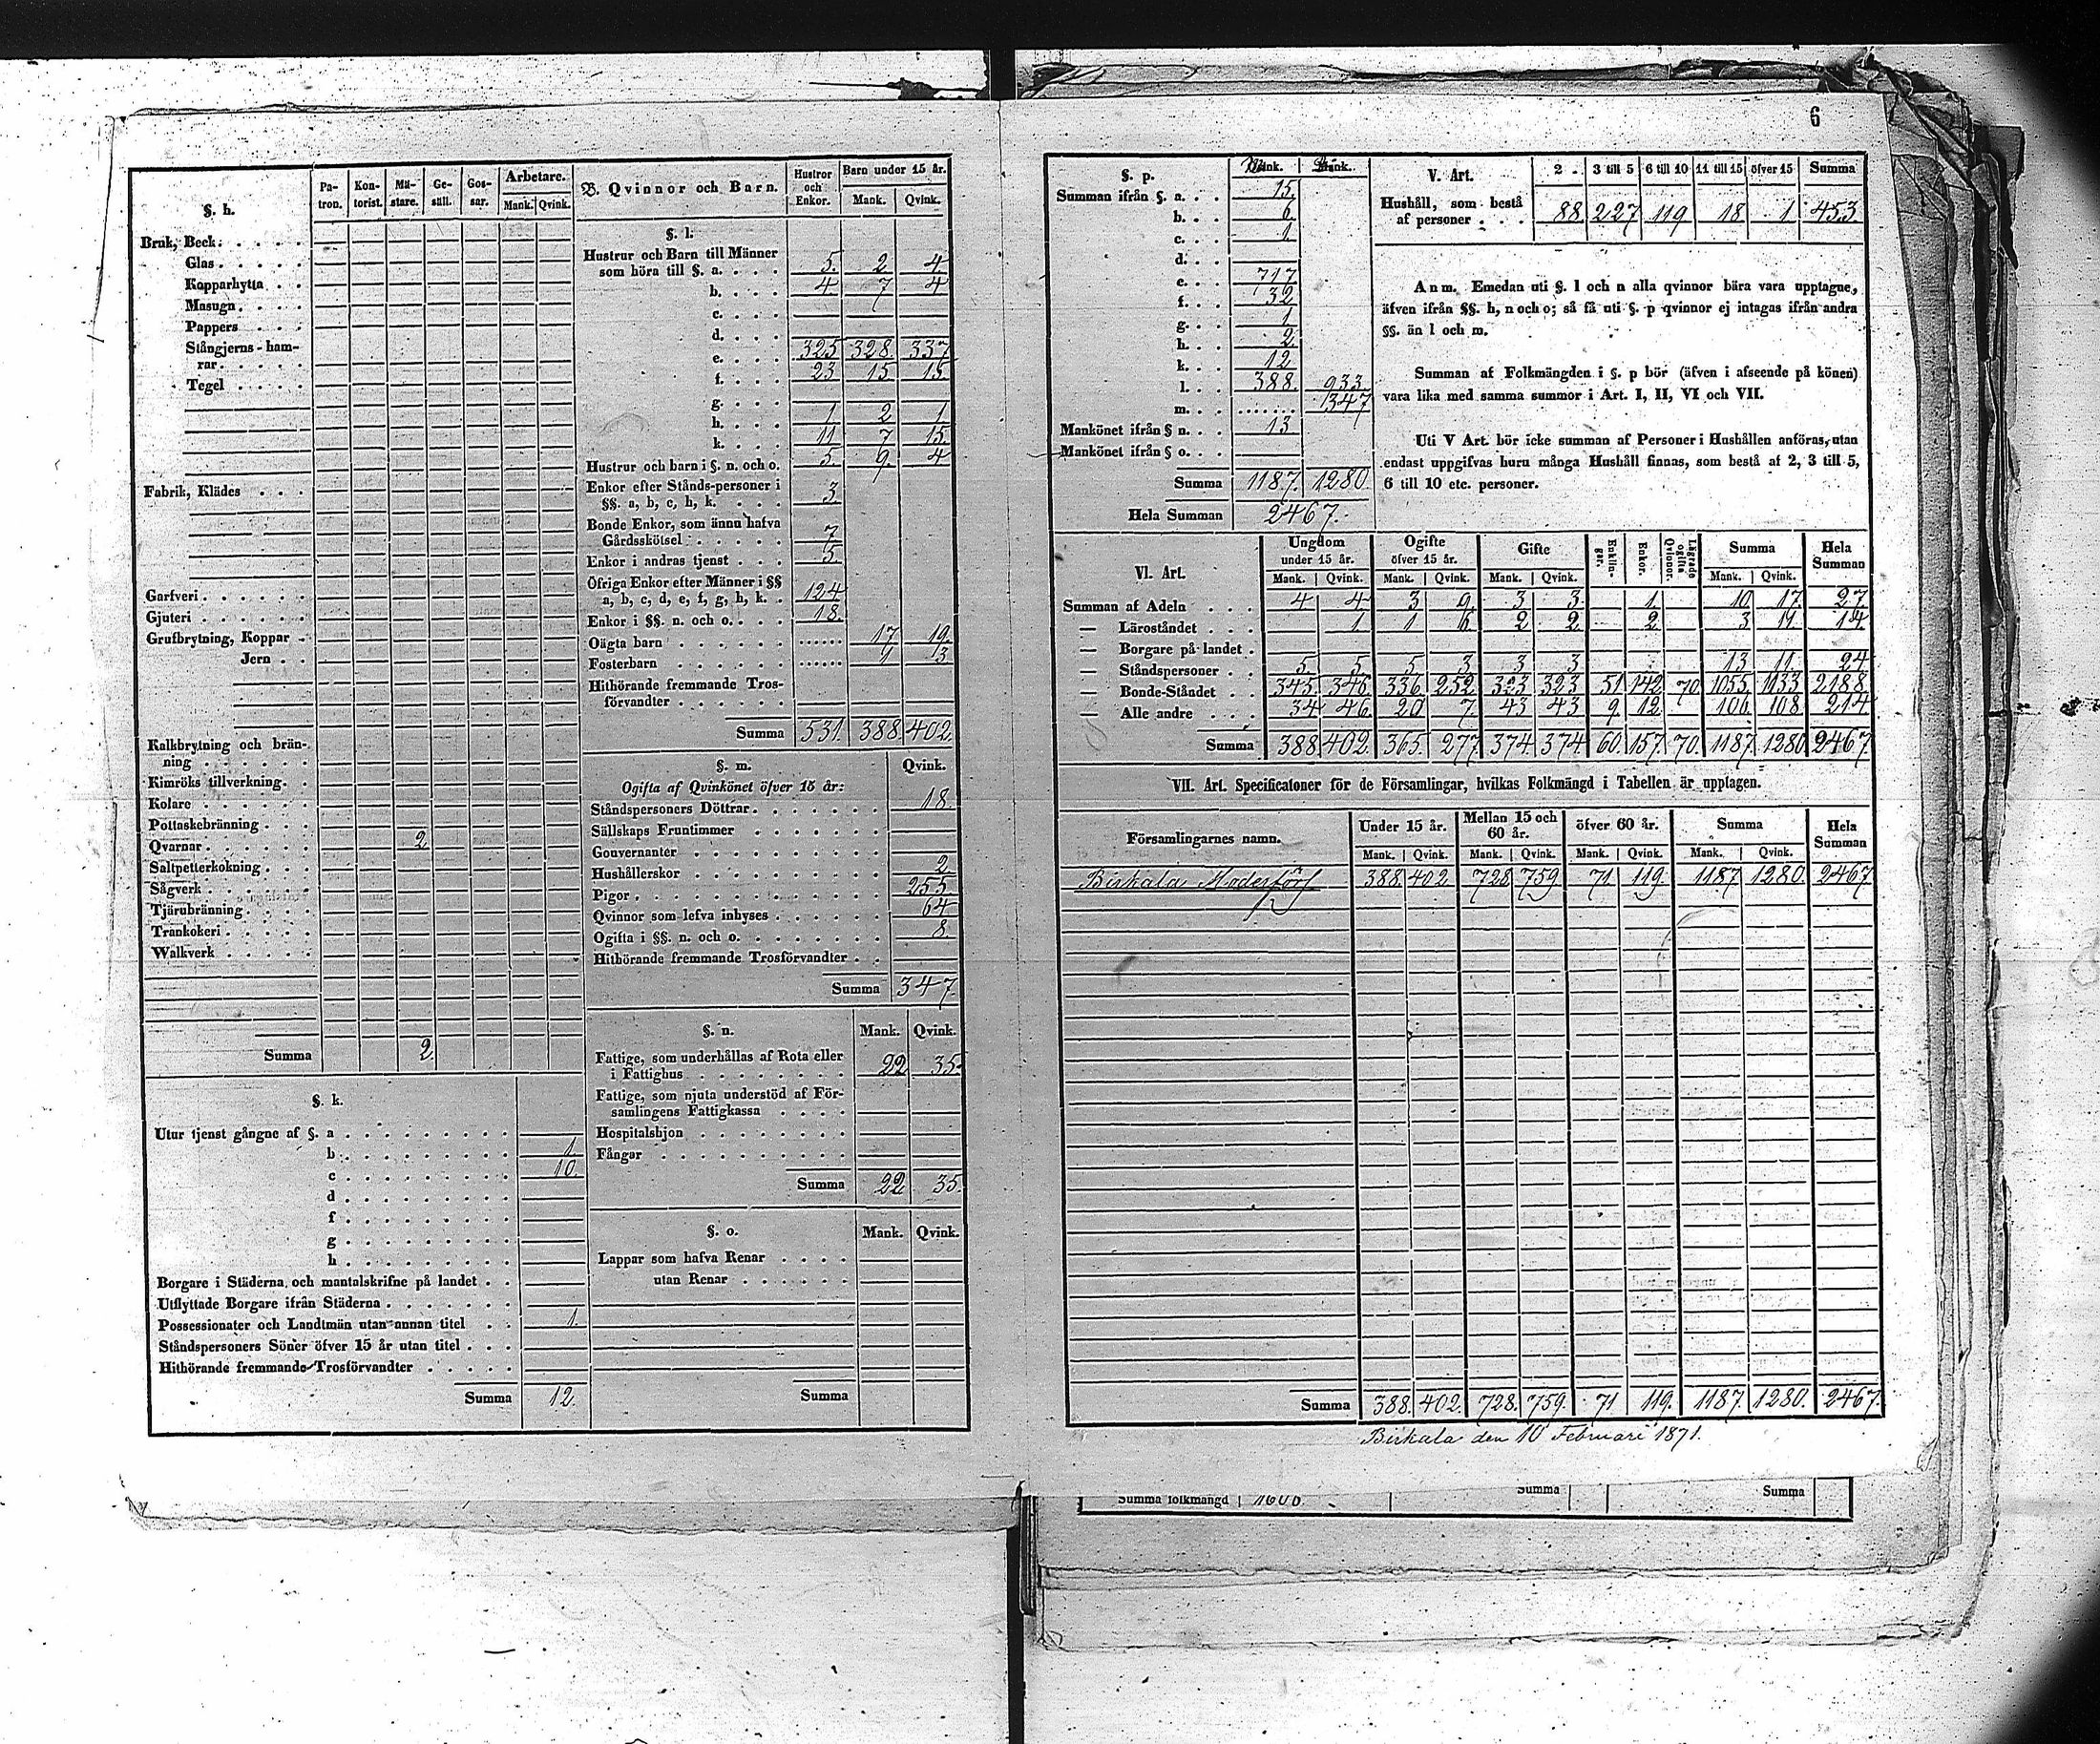 §. h.
Pa-tron. Kon-torist. Mä-stare. Ge-säll. Gos-sar. Arbetare. Mank. Qvink.
Bruk, Beck
Glas
Kopparhytta
Masugn
Pappers
Stångjerns-ham-
rar
Tegel
Fabrik, Klädes
Garfveri
Gjuteri
Grufbrytning, Koppar
Jern
Kalkbrytning och brän-
ning
Kimröks tillverkning
Kolare
Pottaskebränning
Qvarnar 2
Saltpetterkokning
Sågverk
Tjärubränning
Trankokeri
Walkverk
Summa 2
§. k.
Utur tjenst gångne af §. a
b 1.
c 10.
d
f
g
h
Borgare i Städerna och mantalskrifne på landet
Utflyttade Borgare ifrån Städerna
Possessionater och Landtmän utan annan titel 1.
Ståndspersoners Söner öfver 15 år utan titel
Hithörande fremmande Trosförvandter
Summa 12.
B. Qvinnor och Barn. Hustror och Enkor. Barn under 15 år. Mank. Qvink.
§. l:
Hustrur och Barn till Männer
som höra till §. a. 5. 2. 4.
b. 4. 7 4
c.
d.
e. 325 328. 337
f. 23 15. 15.
g.
h. 1 2 1
k. 11 7 15.
Hustrur och barn i §. n. och o. 5. 9. 4
Enkor efter Stånds-personer i
§§. a, b, c, h, k. 3.
Bonde Enkor, som ännu hafva
Gårdsskötsel 7
Enkor i andras tjenst 5.
Öfriga Enkor efter Männer i §§
a, b, c, d, e, f, g, h, k. 124
Enkor i §§. n. och o. 18.
Oägta barn 17 19.
Fosterbarn 1 3
Hithörande fremmande Tros-
förvandter
Summa 531. 388. 402.
§. m. Qvink.
Ogifta af Qvinkönet öfver 15 år:
Ståndspersoners Döttrar 18.
Sällskaps Fruntimmer
Gouvernanter
Hushållerskor 2.
Pigor 255.
Qvinnor som lefva inhyses 64
Ogifta i §§. n. och o. 8.
Hithörande fremmande Trosförvandter
Summa 347.
§. n. Mank. Qvink.
Fattige, som underhållas af Rota eller
i Fattighus 22 35.
Fattige, som njuta understöd af För-
samlingens Fattigkassa
Hospitalshjon
Fångar
Summa 22 35.
§. o. Mank. Qvink.
Lappar som hafva Renar
utan Renar
Summa
6
§. p. Mank.
Summan ifrån §. a. 15.
b. 6.
c. 1.
d.
e. 717
f. 32
g. 1
h. 2
k. 12
l. 388. 933.
m. 347
Mankönet ifrån § n. 13
Mankönet ifrån § o.
Summa 1187. 1280.
Hela Summan 2467.
V. Art. 2 3 till 5 6 till 10 11 till 15 öfver 15 Summa
Hushåll, som bestå
af personer 88 227 119 18 1 453
Anm. Emedan uti §. l och n alla qvinnor bära vara upptagne,
äfven ifrån §§. h, n och o; så få uti §. p qvinnor ej intagas ifrån andra
§§. än l och m.
Summan af Folkmängden i §. p bör (äfven i afseende på könen)
vara lika med samma summor i Art. I, II, VI och VII.
Uti V Art. bör icke summan af Personer i Hushållen anföras, utan
endast uppgifvas huru många Hushåll finnas, som bestå af 2, 3 till 5,
6 till 10 etc. personer.
VI. Art. Ungdom under 15 år. Ogifte öfver 15 år. Gifte Enklin-gar. Enkor. Lägrade ogifta Qvinnor. Summa Hela Summan
Mank. Qvink. Mank. Qvink. Mank. Qvink. Mank. Qvink.
Summan af Adeln 4 4 3 9. 3 3. 1. 10 17. 27.
— Läroståndet 1 1 6. 2 2. 2. 3 11. 14.
— Borgare på landet
— Ståndspersoner 5 5 5 3 3 3 13 11. 24
— Bonde-Ståndet 345. 346. 336. 252. 323 323 51 142. 70 1055. 1133 2188.
— Alle andre 34 46. 20 7. 43 43 9. 12. 106. 108 214
Summa 388. 402. 365. 277. 374. 374 60. 157. 70. 1187. 1280 2467.
VII. Art. Specificatoner för de Församlingar, hvilkas Folkmängd i Tabellen är upptagen.
Församlingarnes namn. Under 15 år. Mellan 15 och 60 år. öfver 60 år. Summa Hela Summan
Mank. Qvink. Mank. Qvink. Mank. Qvink. Mank. Qvink.
Birkala Moderförs 388. 402. 728 759 71 119. 1187 1280. 2467
Summa 388. 402. 728. 759. 71 119. 1187. 1280. 2467.
Birkala den 10 Februari 1871.
Summa folkmängd Summa Summa